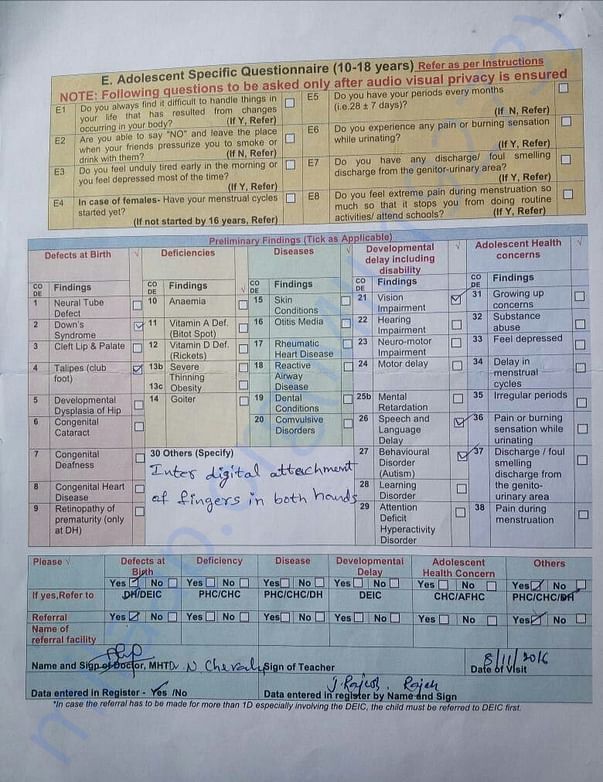 E. Adolescent Specific Questionnaire (10-18 years) Refer as per Instructions
NOTE: Following questions to be asked only after audio visual privacy is ensured
E1 Do you always find it difficult to handle things in your life that has resulted from changes occurring in your body? (If Y, Refer)
E2 Are you able to say "NO" and leave the place when your friends pressurize you to smoke or drink with them? (If N, Refer)
E3 Do you feel unduly tired early in the morning or you feel depressed most of the time? (If Y, Refer)
E4 In case of females- Have your menstrual cycles started yet? (If not started by 16 years, Refer)
E5 Do you have your periods every months (i.e.28 ± 7 days)? (If N, Refer)
E6 Do you experience any pain or burning sensation while urinating? (If Y, Refer)
E7 Do you have any discharge/ foul smelling discharge from the genitor-urinary area? (If Y, Refer)
E8 Do you feel extreme pain during menstruation so much so that it stops you from doing routine activities/ attend schools? (If Y, Refer)
Preliminary Findings (Tick as Applicable)
Defects at Birth √
CODE Findings
1 Neural Tube Defect
2 Down's Syndrome
3 Cleft Lip & Palate
4 Talipes (club foot)
5 Developmental Dysplasia of Hip
6 Congenital Cataract
7 Congenital Deafness
8 Congenital Heart Disease
9 Retinopathy of prematurity (only at DH)
Deficiencies √
CODE Findings
10 Anaemia
11 Vitamin A Def. (Bitot Spot)
12 Vitamin D Def. (Rickets)
13b Severe Thinning
13c Obesity
14 Goiter
Diseases √
CODE Findings
15 Skin Conditions
16 Otitis Media
17 Rheumatic Heart Disease
18 Reactive Airway Disease
19 Dental Conditions
20 Comvulsive Disorders
30 Others (Specify)
Inter digital attachment
of fingers in both hands
Developmental delay including disability √
CODE Findings
21 Vision Impairment
22 Hearing Impairment
23 Neuro-motor Impairment
24 Motor delay
25b Mental Retardation
26 Speech and Language Delay
27 Behavioural Disorder (Autism)
28 Learning Disorder
29 Attention Deficit Hyperactivity Disorder
Adolescent Health concerns √
CODE Findings
31 Growing up concerns
32 Substance abuse
33 Feel depressed
34 Delay in menstrual cycles
35 Irregular periods
36 Pain or burning sensation while urinating
37 Discharge / foul smelling discharge from the genito-urinary area
38 Pain during menstruation
Please √ Defects at Birth Deficiency Disease Developmental Delay Adolescent Health Concern Others
Yes No Yes No Yes No Yes No Yes No Yes No
If yes,Refer to DH/DEIC PHC/CHC PHC/CHC/DH DEIC CHC/AFHC PHC/CHC/DH
Referral Yes No Yes No Yes No Yes No Yes No Yes No
Name of referral facility
Name and Sign of Doctor, MHT Sign of Teacher 8/11/2016 Date of Visit
Data entered in Register - Yes /No J Rajesh. Data entered in register by Name and Sign
*In case the referral has to be made for more than 1D especially involving the DEIC, the child must be referred to DEIC first.